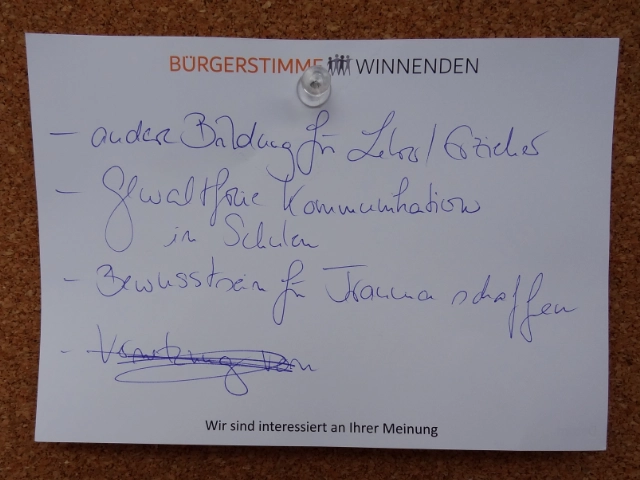 BÜRGERSTIMME WINNENDEN
- andere Bildung für Lehrer/Erzieher
- Gewaltfreie Kommunikation
in Schulen
- Bewusstsein für Trauma schaffen
-
Wir sind interessiert an Ihrer Meinung